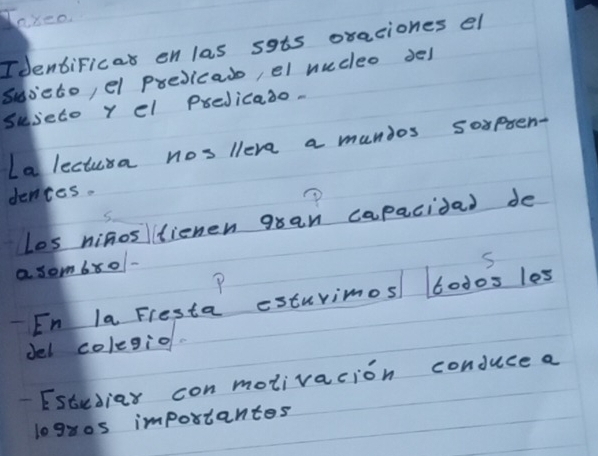 Identificar en las sgts oraciones el
sujeto, el Predicado, el nucleo del
sujeto y el Predicado.
La lectura nos lleva a mundos sorpren-
dentes.
S P
- Los niños tienen gran capacidad de
asombro.
P S
- En la Fiesta estuvimos todos los
del colegio.
- Estudiar con motivación conduce a
logros importantes